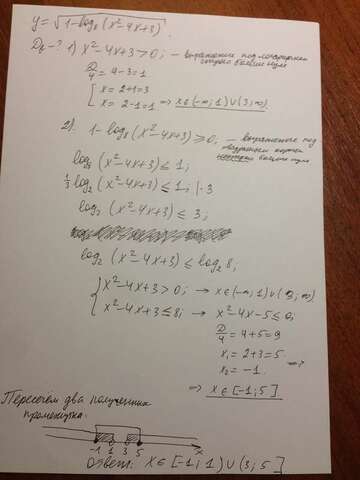 y = √(1 - log₈(x² - 4x + 3))
D_f - ? 1) x² - 4x + 3 > 0; — выражение под логарифмом
строго больше нуля
D/4 = 4 - 3 = 1
{ x = 2 + 1 = 3
x = 2 - 1 = 1 ⇒ x ∈ (-∞; 1) ∪ (3; ∞)
2). 1 - log₈(x² - 4x + 3) ≥ 0; — выражение под
квадратным корнем
больше нуля
log₈(x² - 4x + 3) ≤ 1;
1/3 log₂(x² - 4x + 3) ≤ 1, | · 3
log₂(x² - 4x + 3) ≤ 3;
log₂(x² - 4x + 3) ≤ log₂ 8;
{ x² - 4x + 3 > 0; → x ∈ (-∞; 1) ∪ (3; ∞)
x² - 4x + 3 ≤ 8; → x² - 4x - 5 ≤ 0;
D/4 = 4 + 5 = 9
x₁ = 2 + 3 = 5
x₂ = -1
⇒ x ∈ [-1; 5]
Пересечём два полученных
промежутка:
-1 1 3 5 x
Ответ: x ∈ [-1; 1) ∪ (3; 5]